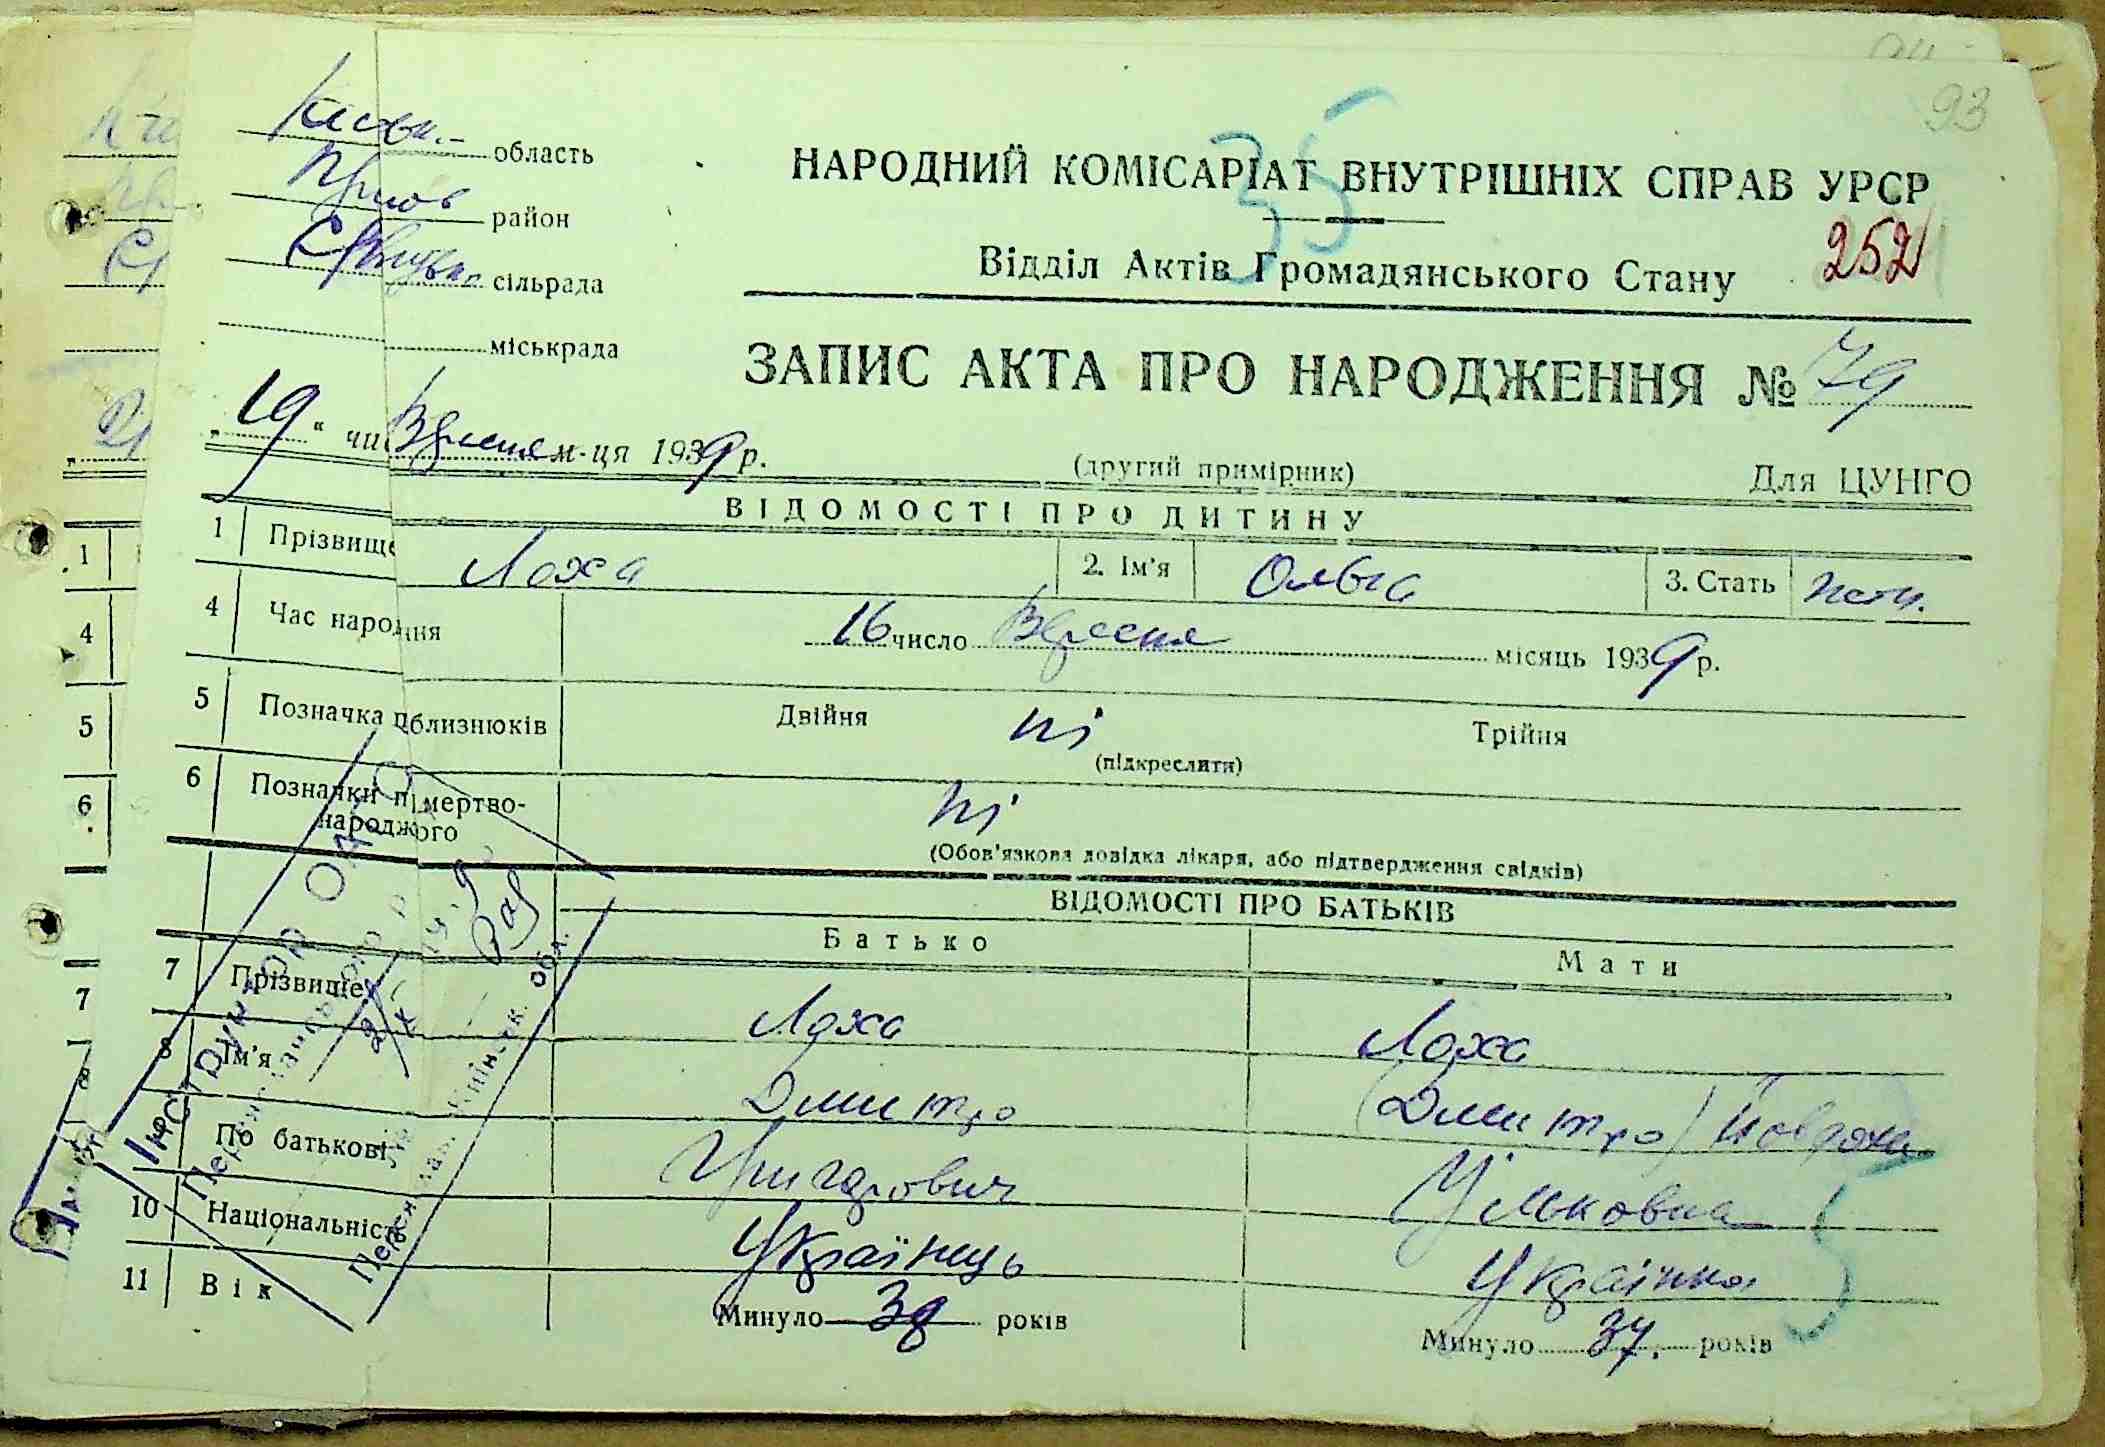 93
область
район
сільрада
міськрада
35
НАРОДНИЙ КОМІСАРІАТ ВНУТРІШНІХ СПРАВ УРСР
Відділ Актів Громадянського Стану
252
ЗАПИС АКТА ПРО НАРОДЖЕННЯ № 79
„19“ чи Вересня м-ця 1939 р.
(другий примірник)
Для ЦУНГО
ВІДОМОСТІ ПРО ДИТИНУ
1 Прізвище Лоха 2. Ім'я Ольга 3. Стать жін.
4 Час народ ння 16 число Вересня місяць 1939 р.
5 Позначка п близнюків Двійня ні Трійня
(підкреслити)
6 Позначки п мертво-
народж ого ні
(Обов'язкова довідка лікаря, або підтвердження свідків)
ВІДОМОСТІ ПРО БАТЬКІВ
Батько Мати
7 Прізвище Лоха Лоха
8 Ім'я Дмитро (Дмитро)
По батькові Григорович
10 Національність Українець Українка
11 Вік Минуло 38 років Минуло 37. років
1
4
5
6
7
8